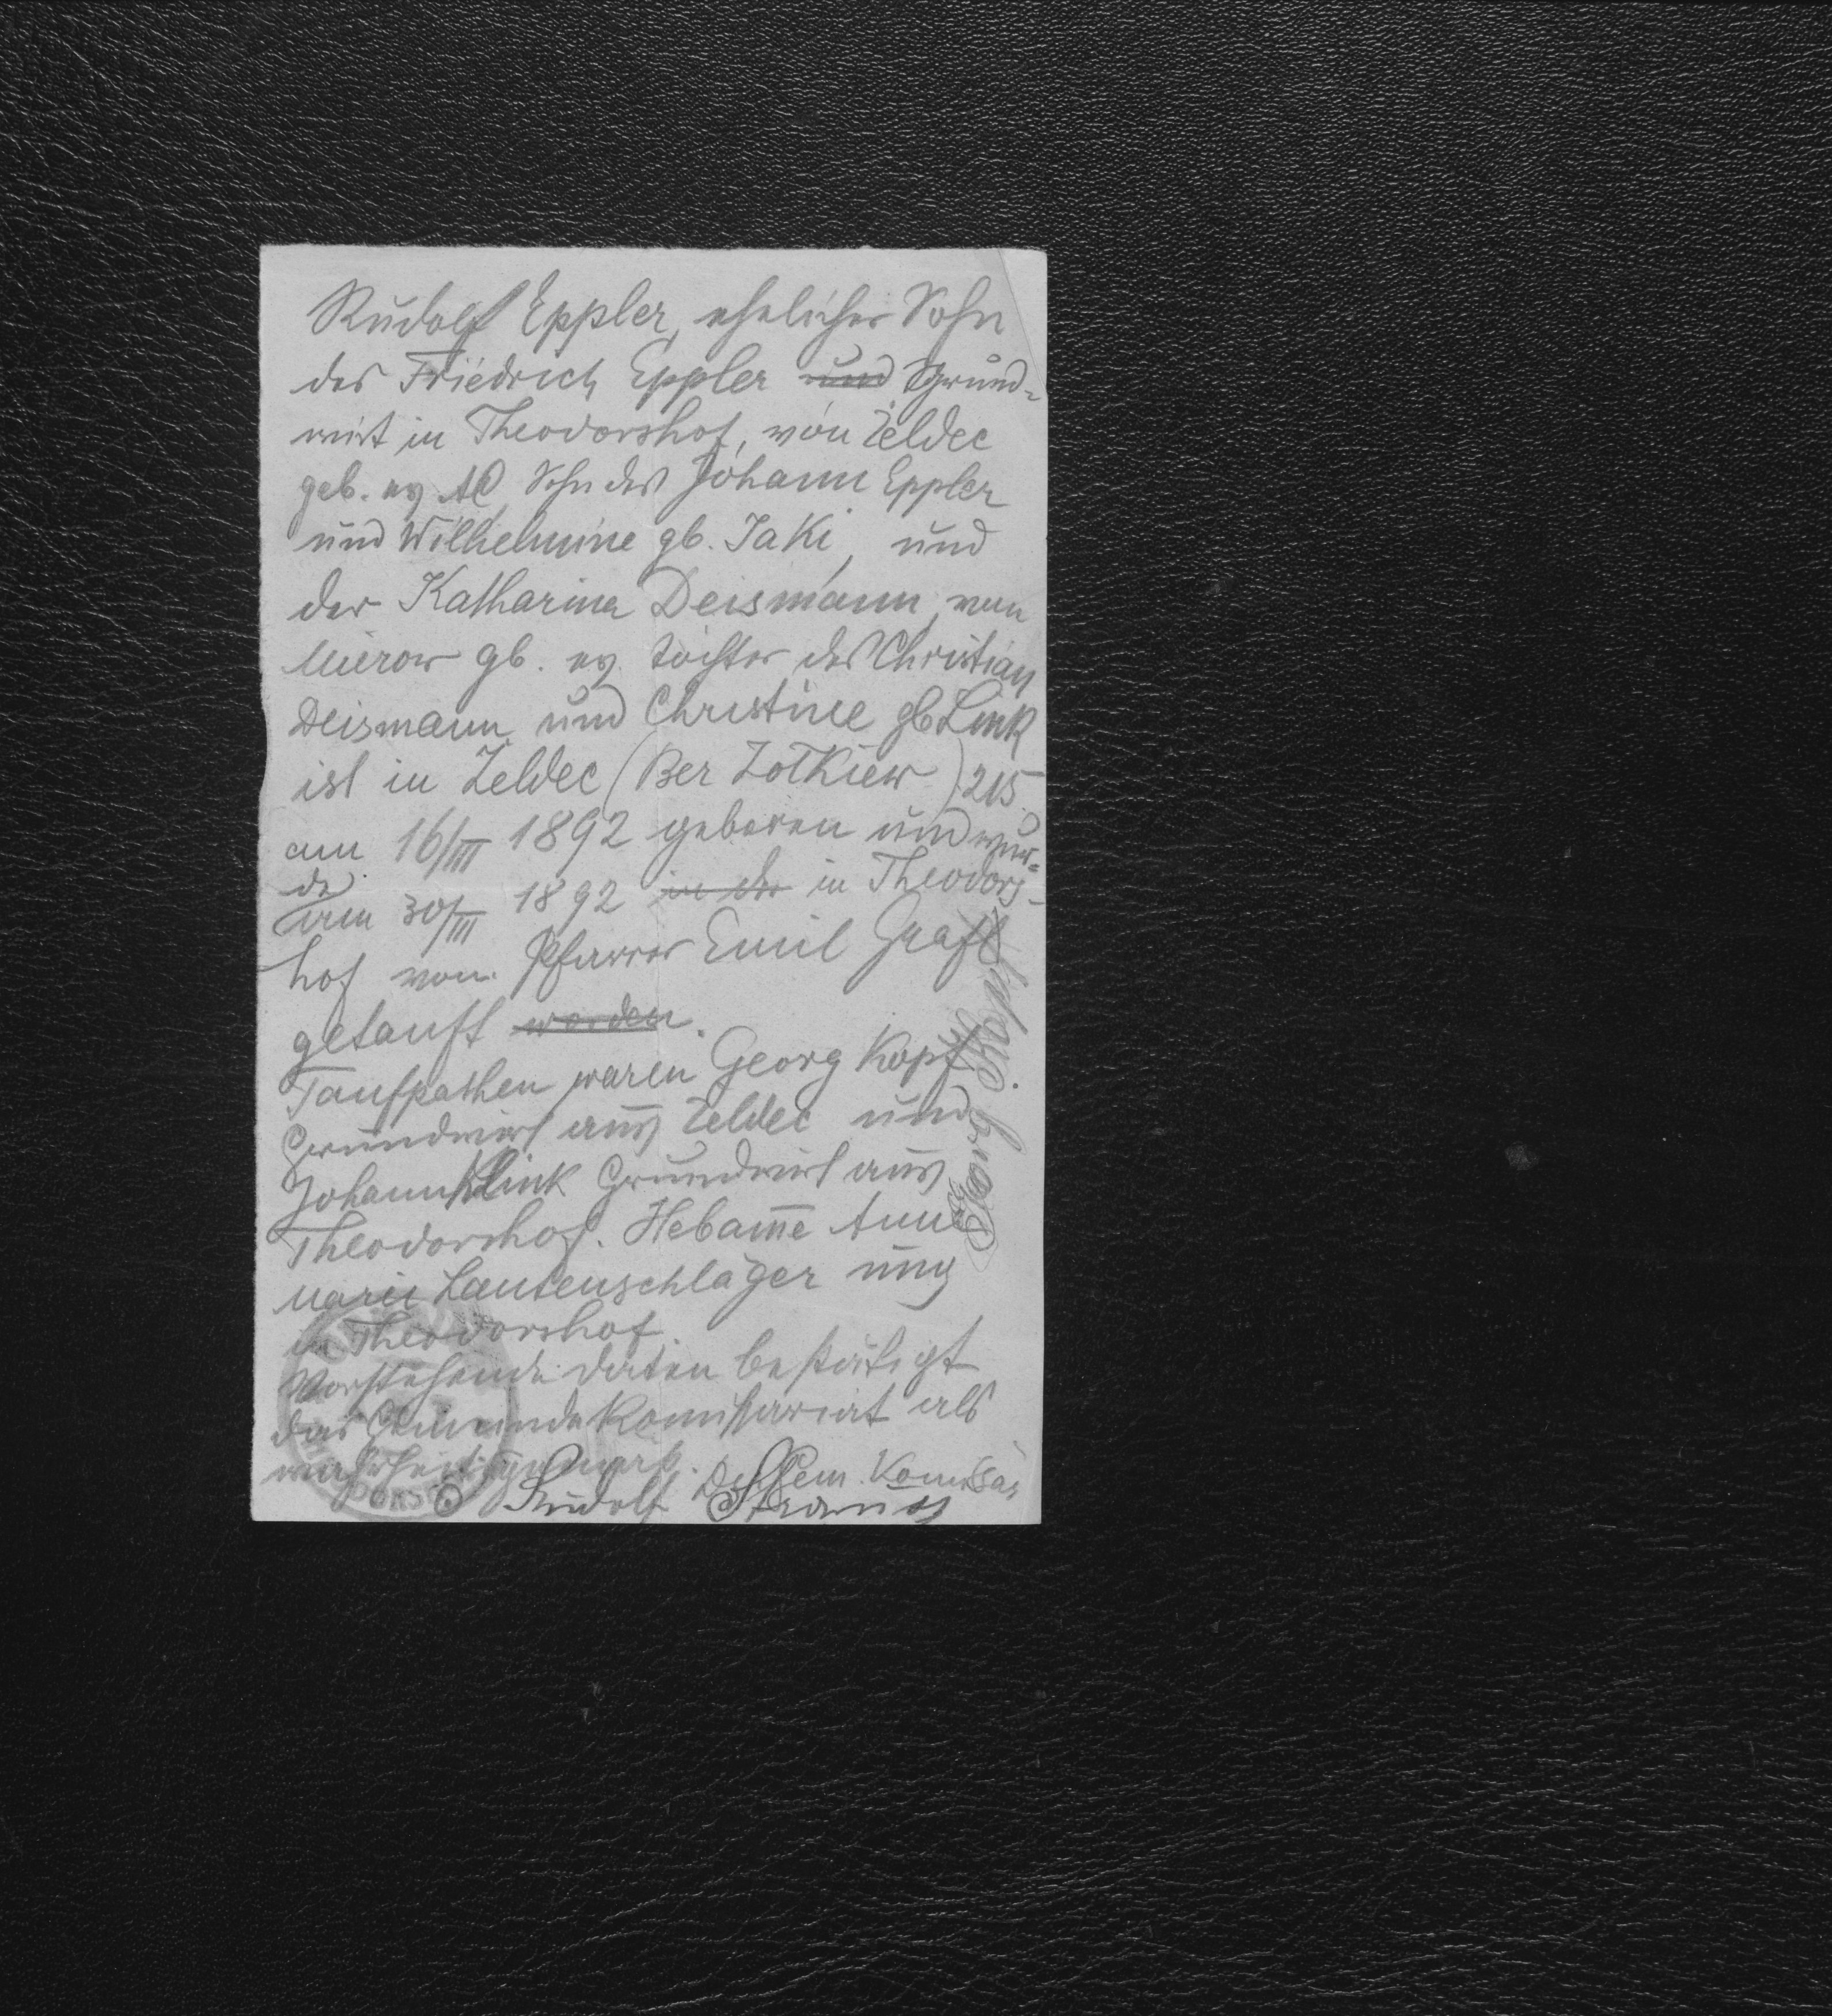 Rudolf Eppler, ehelicher Sohn
des Friedrich Eppler und Grund-
wirt in Theodorshof, von Zeldec
geb. ev AC, Sohn des Johann Eppler
und Wilhelmine gb. Jaki, und
der Katharina Deismann, von
Mierow gb. ev. Tochter des Christian
Deismann und Christine gb Link
ist in Zeldec (Bez Zolkiew) 215.
am 16/III 1892 geboren und wur-
de
am 30/III 1892 in der in Theodors-
hof von Pfarrer Emil Graft
getauft worden.
Taufpathen waren Georg Kopf
Grundwirt aus Zeldec und
Johann Klink Grundwirt aus
Theodorshof. Hebam̅e Anna
Marie Lautenschläger aus
in Theodorshof.
Vorstehende Daten bestätigt
das Gemeindekomissariat als
wahrheitsgemäß.
Der Gem. Komissär
Rudolf Strauss
Georg Kopf